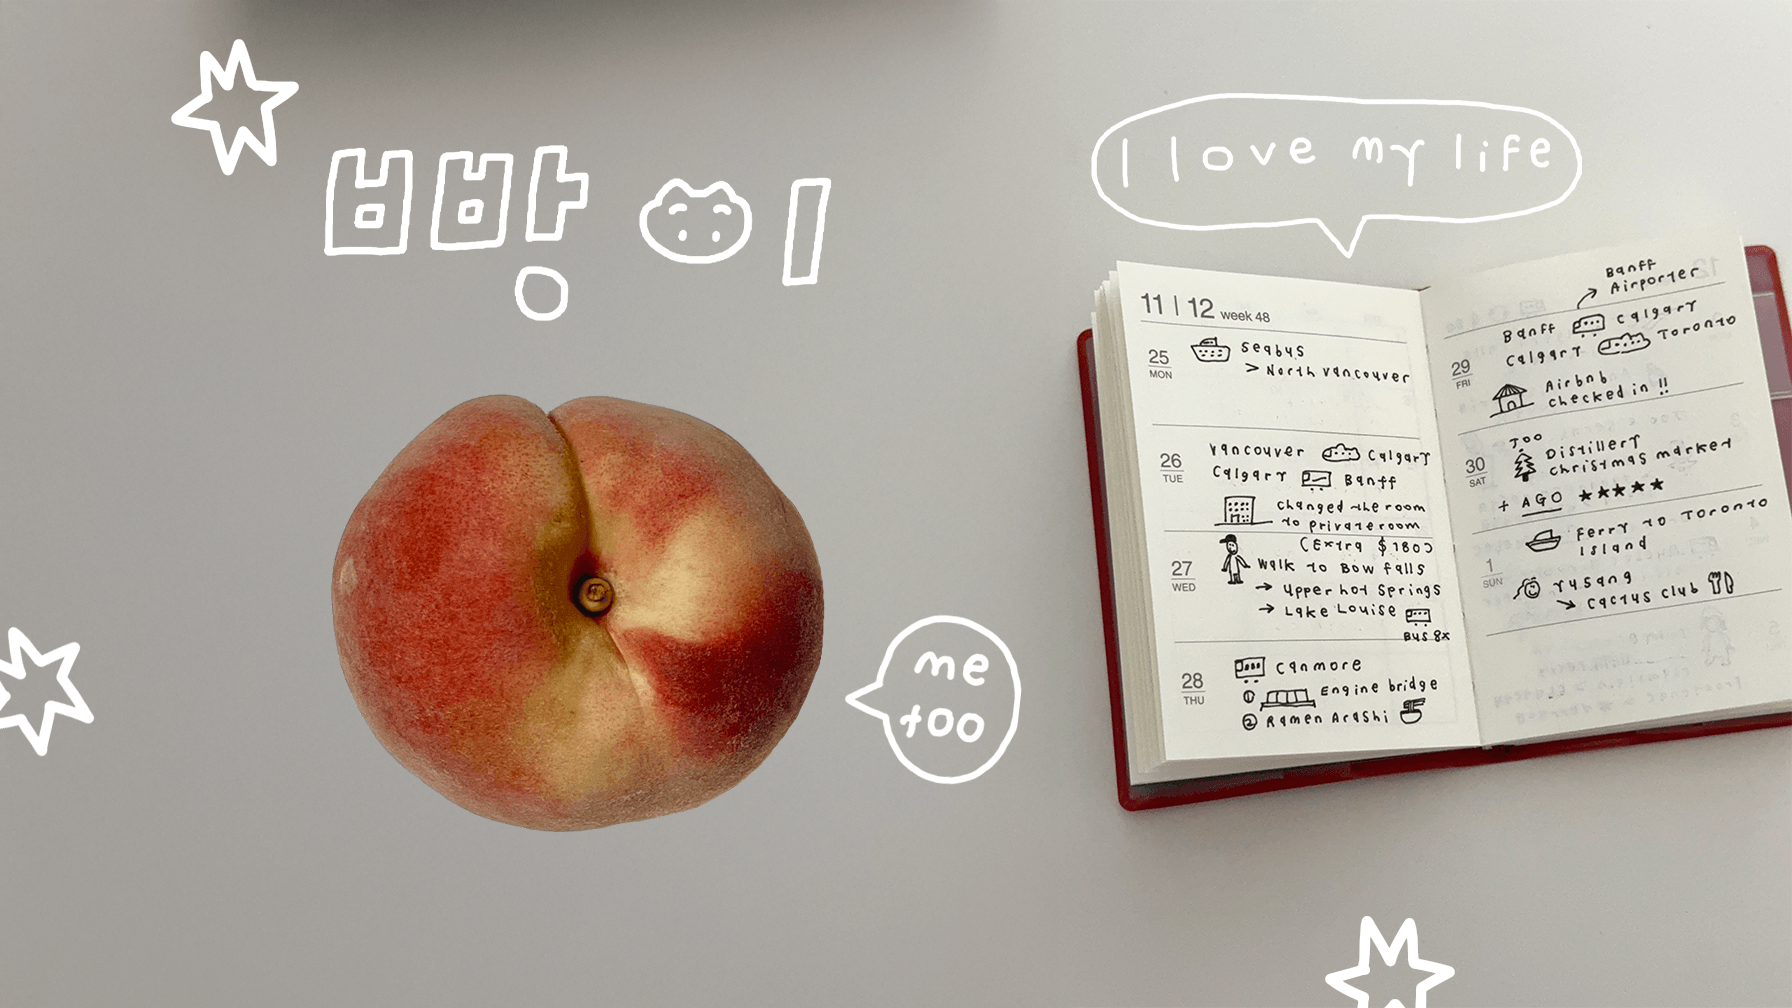 빵이
I love my life
me too
11 | 12 week 48
25 MON
seabus
> North vancouver
26 TUE
vancouver calgary
calgary Banff
changed the room
to private room
(Extra $180)
27 WED
walk to Bow falls
→ Upper hot springs
→ Lake Louise
Bus 8x
28 THU
canmore
① Engine bridge
② Ramen Arashi
Banff
Airporter
29 FRI
Banff calgary
calgary Toronto
Airbnb
checked in !!
30 SAT
Distillery
christmas market
+ AGO ★★★★★
1 SUN
Ferry to Toronto
Island
yusang
→ cactus club